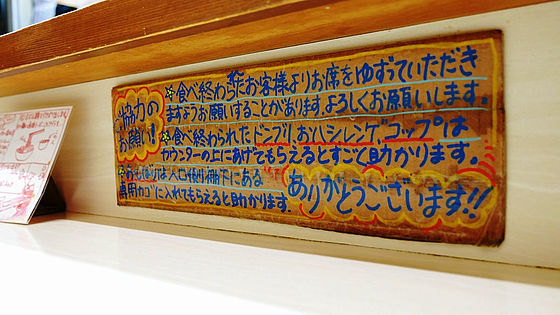 協力の
お願い!
食べ終わられたお客様よりお席をゆずっていただき
ますようお願いすることがあります。よろしくお願いします。
食べ終わられたドンブリ、おハシ、レンゲ、コップは
カウンターの上にあげてもらえるとすごく助かります。
おしぼりは入口側の棚下にある
専用カゴに入れてもらえると助かります。
ありがとうございます!!